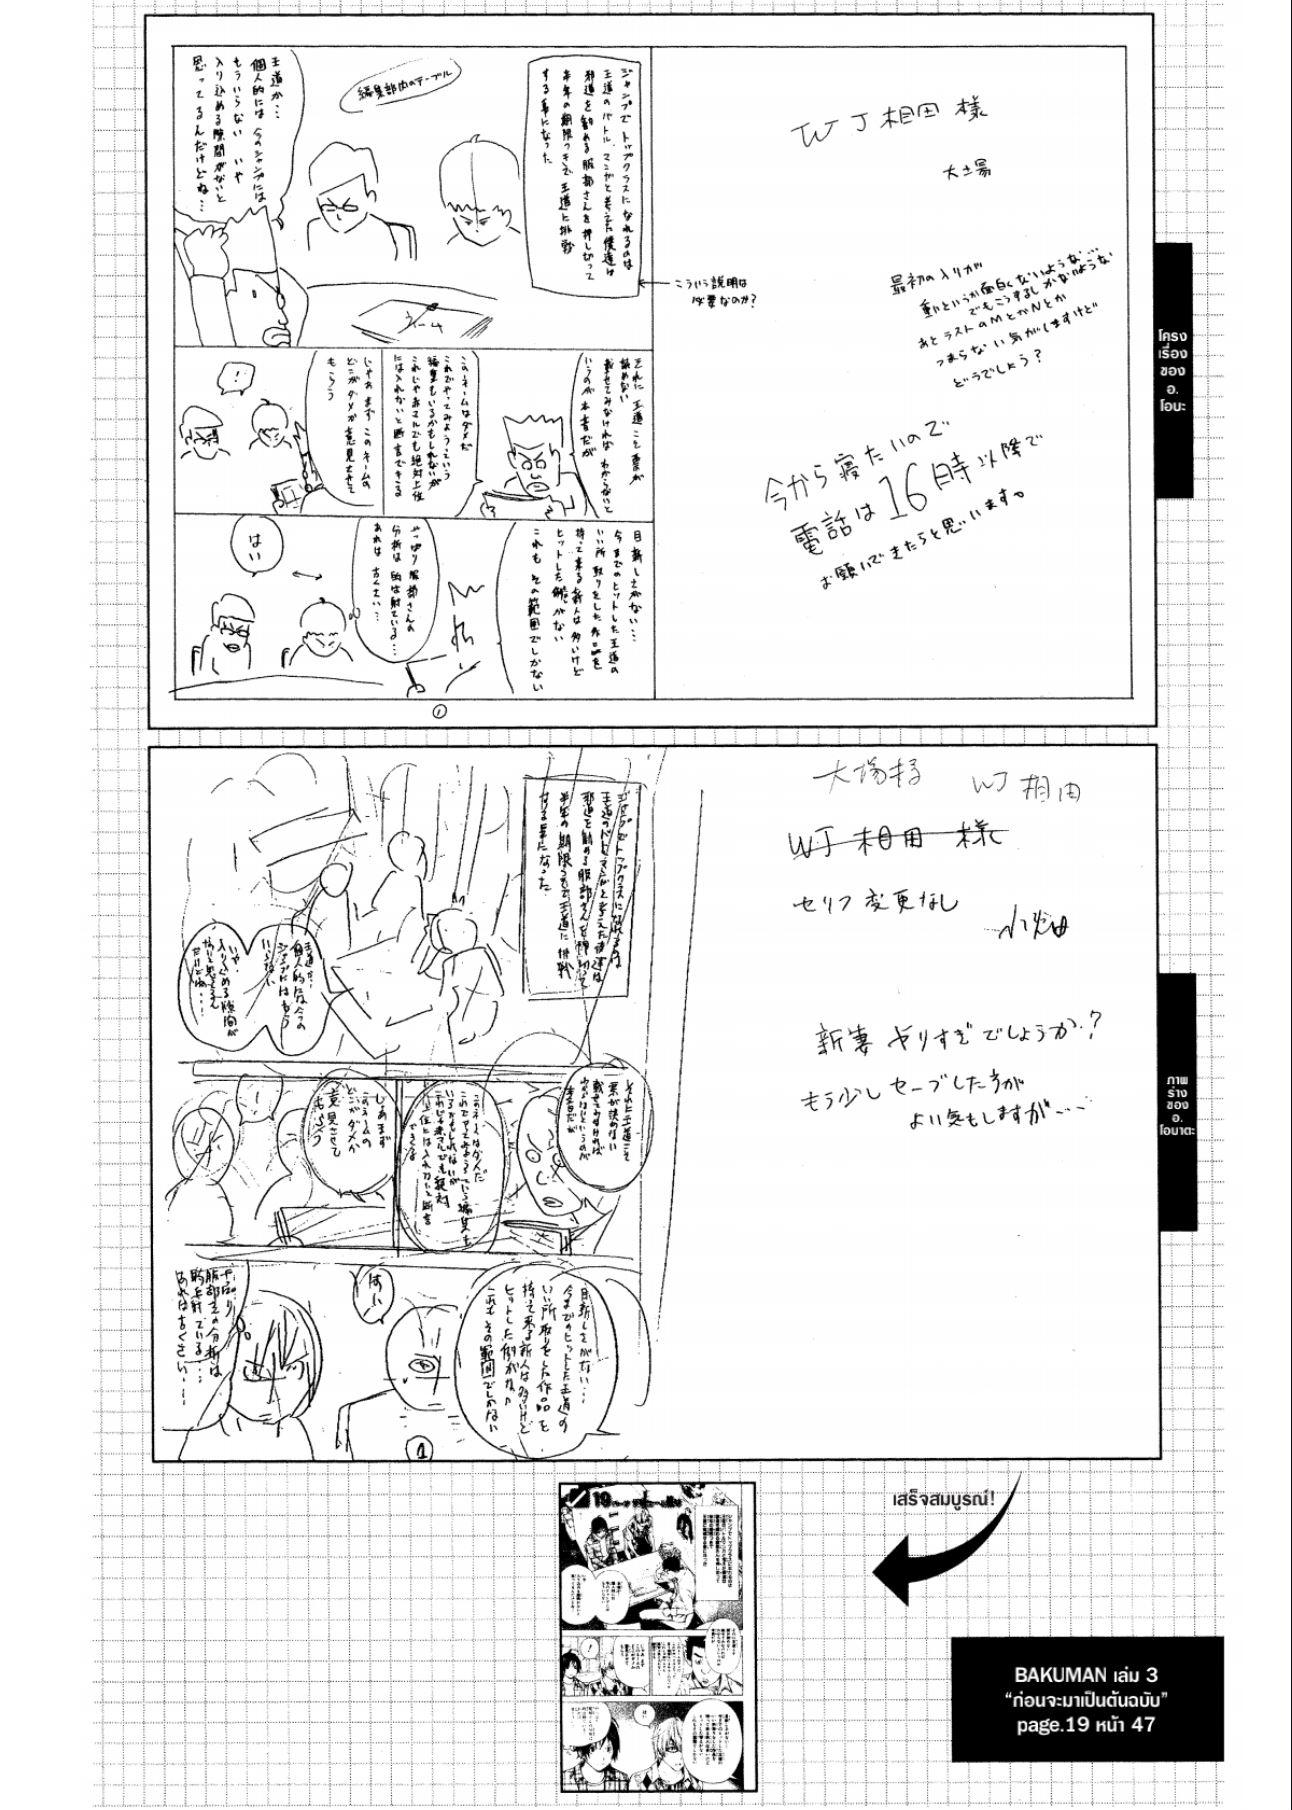 ジャンプでトップクラスになれるのは
王道のバトルマンガと考えた僕達は
邪道を勧める服部さんを押し切って
半年の期限つきで王道に挑戦
する事になった
編集部内のテーブル
王道か…
個人的には今のジャンプには
もういらない いや
入り込める隙間がないと
思ってるんだけどね…
それに王道こそ票が
読めない
載せてみなければわからないと
いうのが本音だが
このネームはダメだ
これでやってみようっていう
編集もいるかもしれないが
これじゃ赤マルでも絶対上位
には入れないと断言できる
じゃあまずこのネームの
どこがダメか意見させて
もらう
!
目新しさがない…
今までのヒットした王道の
いい所取りをした作品を
持って来る新人は多いけど
ヒットした例がない
これもその範囲でしかない
やっぱり服部さんの
分析は的は射ている…
あれは古くさい…
はい
①
WJ相田様
大場
こういう説明は
必要なのか?
最初の入りが
動というか面白くないような…
でもこうするしかないような
あとラストのMとかNとか
つまらない気がしますけど
どうでしょう?
今から寝たいので
電話は16時以降で
お願いできたらと思います。
โครง
เรื่อง
ของ
อ.
โอบะ
ジャンプでトップクラスになれるのは
王道のバトルマンガと考えた僕達は
邪道を勧める服部さんを押し切って
半年の期限つきで王道に挑戦
する事になった
王道か…
個人的には今の
ジャンプにはもう
いらない
いや
入り込める隙間が
ないと思ってるん
だけどね…
それに王道こそ
票が読めない
載せてみなければ
わからないというのが
本音だが
このネームはダメだ
これでやってみようっていう編集も
いるかもしれないが
これじゃ赤マルでも絶対
上位には入れないと断言
できる
じゃあまず
このネームの
どこがダメか
意見させて
もらう
目新しさがない…
今までのヒットした王道の
いい所取りをした作品を
持って来る新人は多いけど
ヒットした例がない
これもその範囲でしかない
はい
やっぱり
服部さんの分析は
的は射ている…
あれは古くさい…
1
大場様 WJ相田
WJ相田様
セリフ変更なし
小畑
新妻やりすぎでしょうか?
もう少しセーブした方が
よい気もしますが…
ภาพ
ร่าง
ของ
อ.
โอบาตะ
เสร็จสมบูรณ์!
BAKUMAN เล่ม 3
“ก่อนจะมาเป็นต้นฉบับ”
page.19 หน้า 47